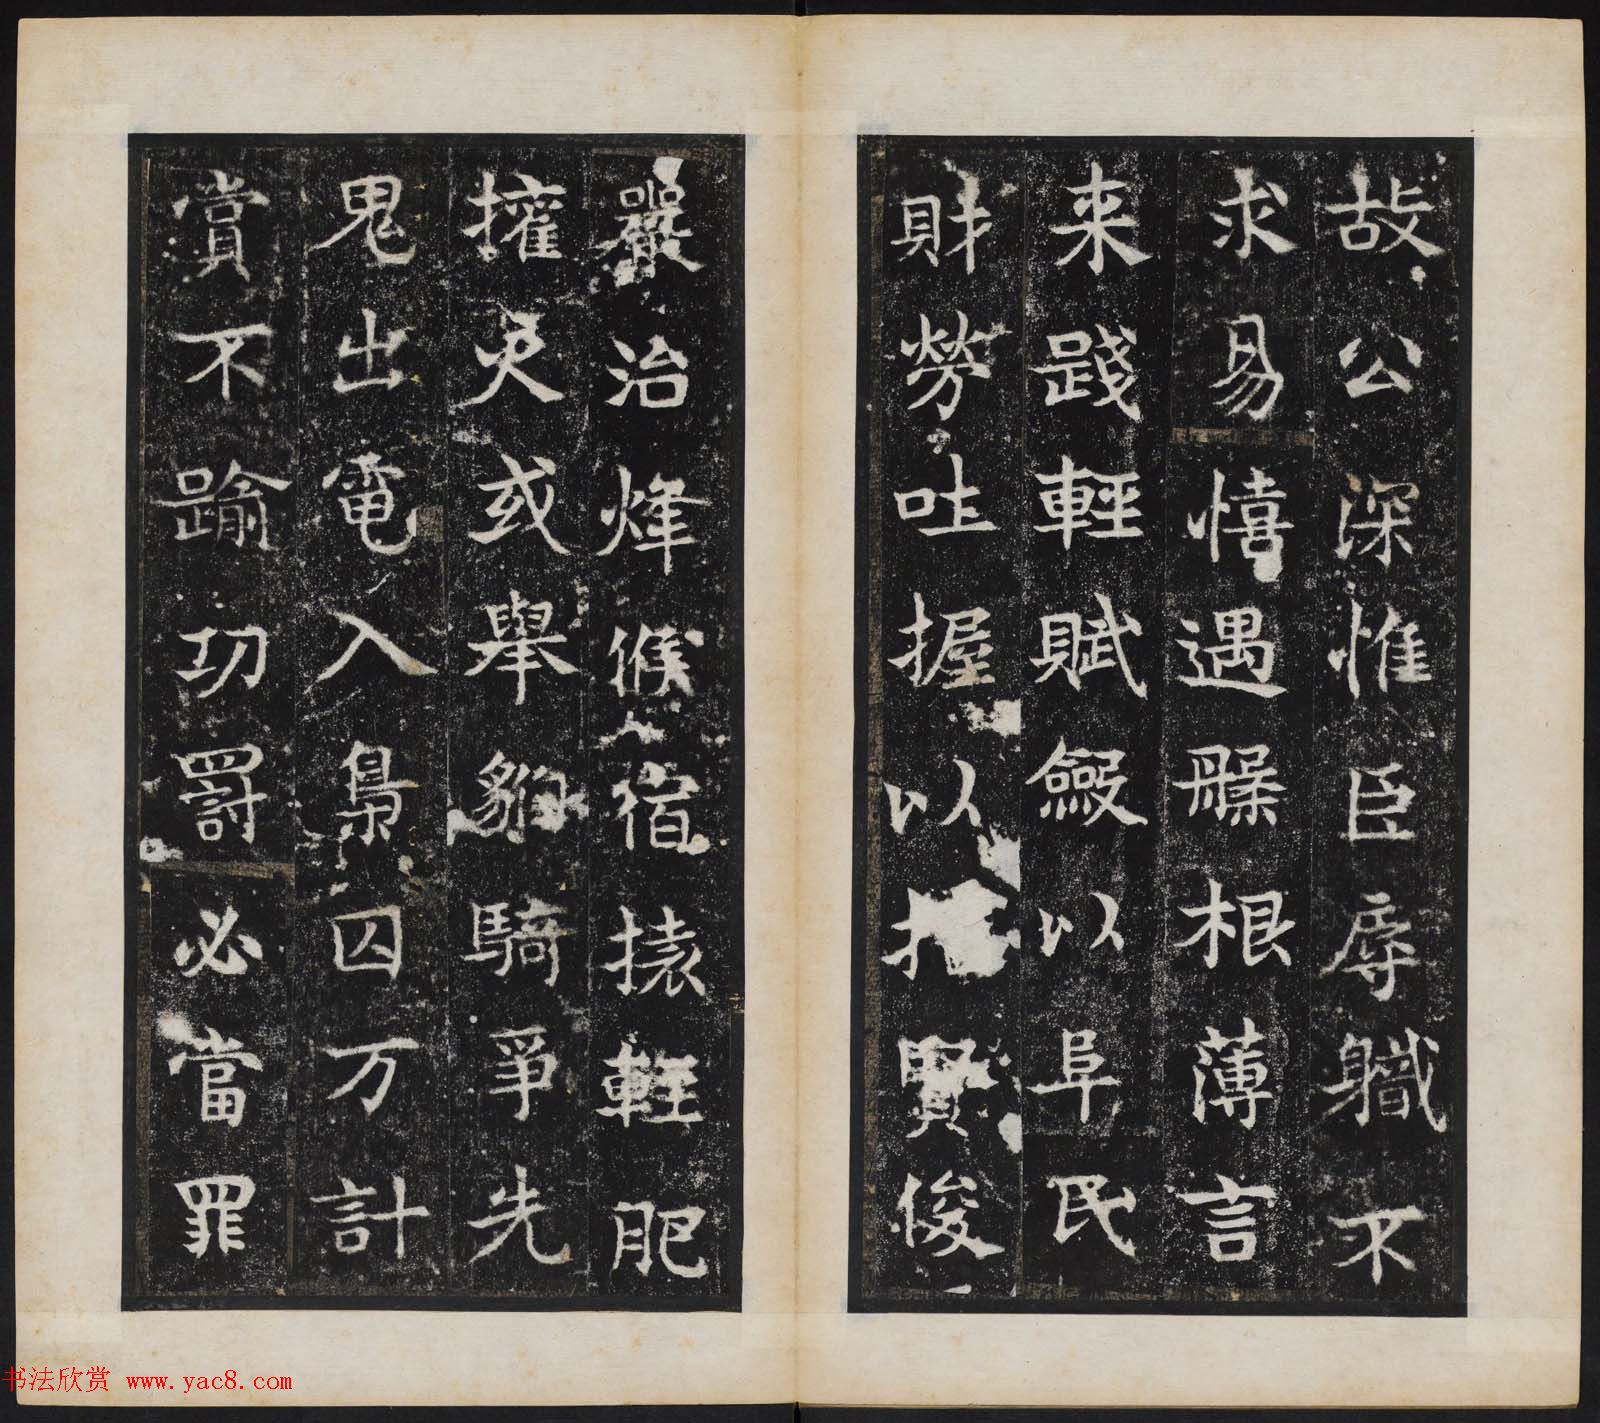 故公深惟臣辱軄不
求易憘遇槃根薄言
来踐輕賦斂以阜民
財勞吐握以賢俊
嚴治烽候宿援輕肥
擢或舉騎爭先
鬼出電入梟囚万計
賞不踰功罰必當罪
书法欣赏 www.yac8.com